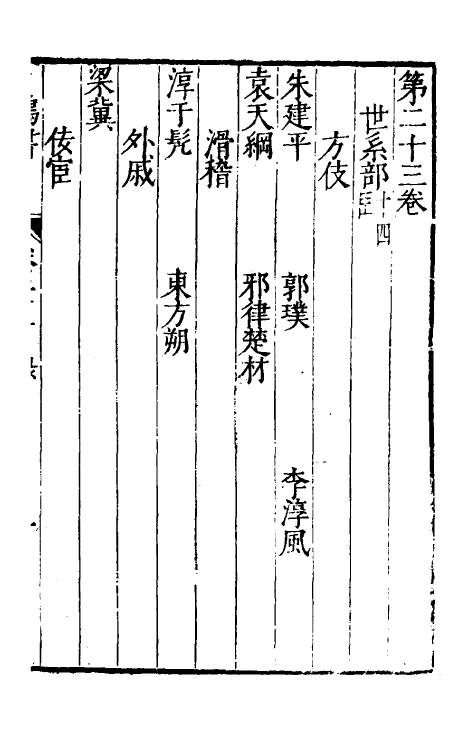 第二十三卷
世系部十四
方伎
朱建平　郭璞　李淳風
袁天綱　邪律楚材
滑稽
淳于髡　東方朔
外戚
梁冀
佞宦